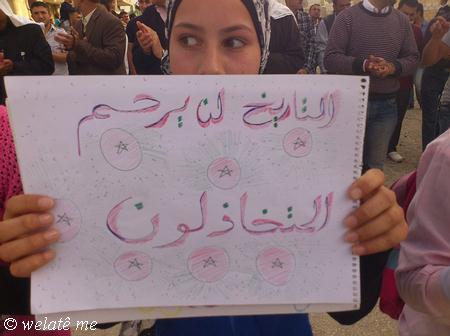 التاريخ لن يرحم
التخاذلون
© welatê me